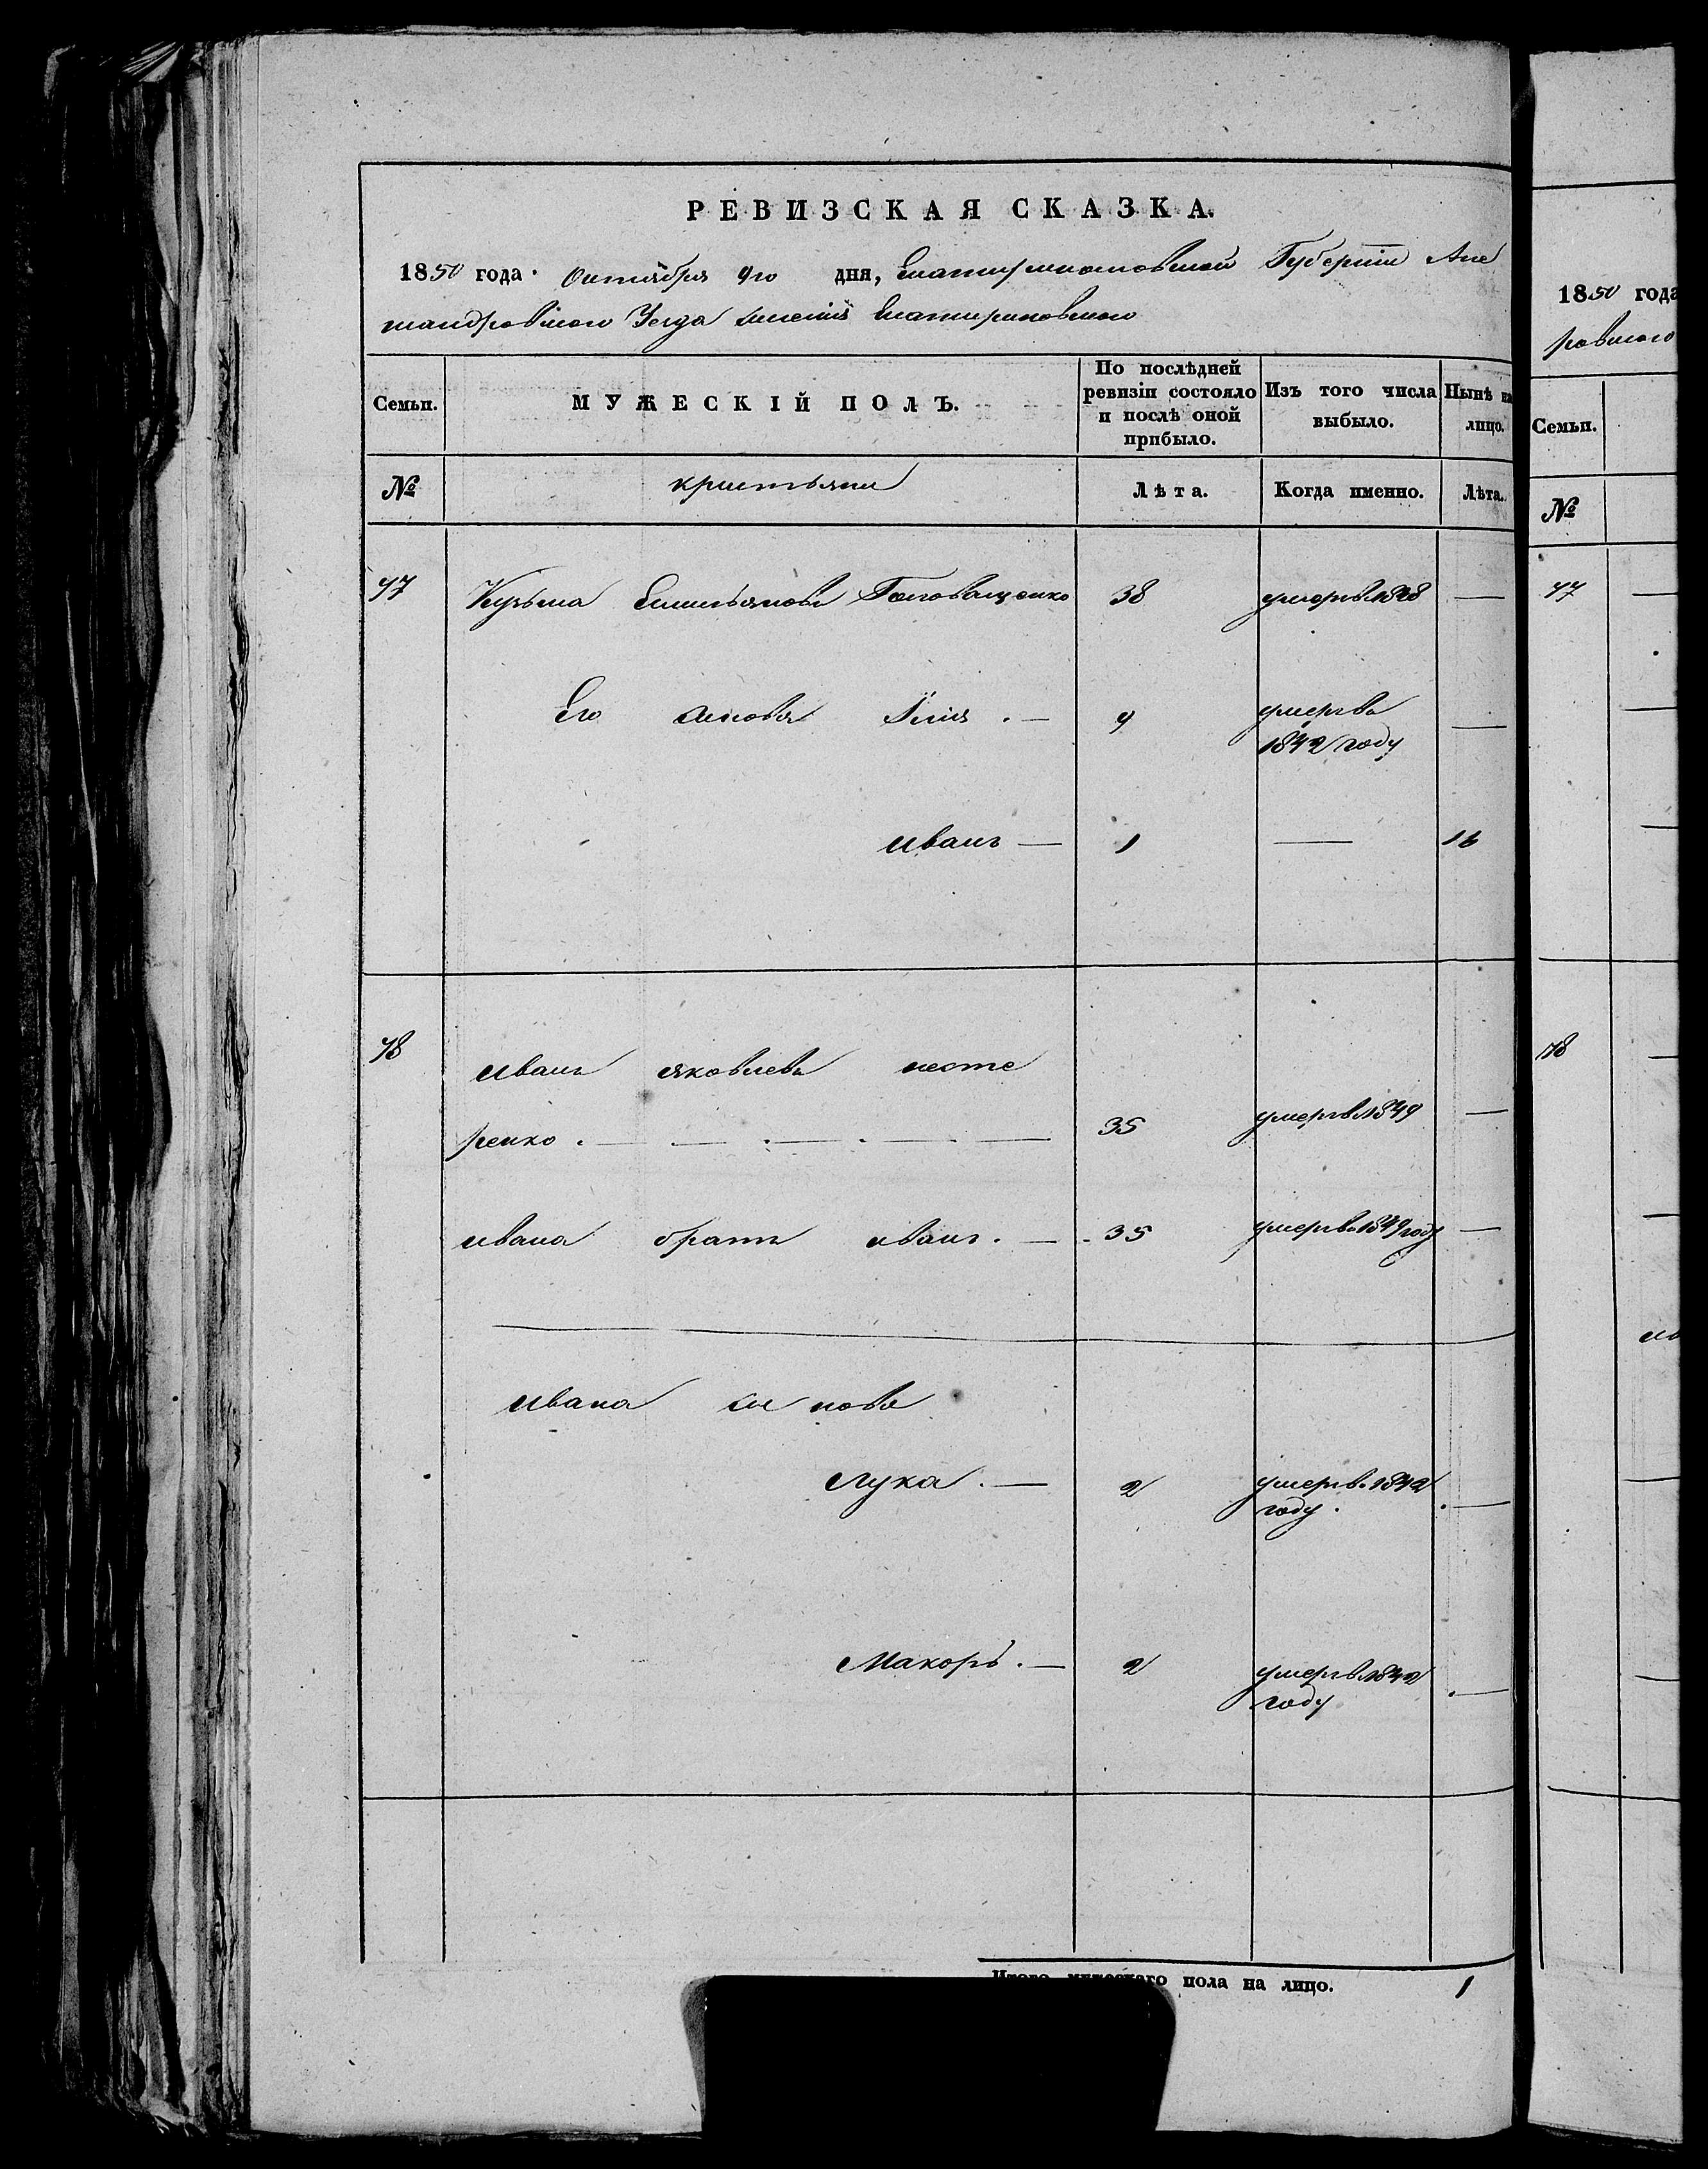 РЕВИЗСКАЯ СКАЗКА.
1850 года. Октября 9го дня, Екатеринославской Губернии Але
ксандровского Уезда имения Екатериновского
Семьи. МУЖЕСКІЙ ПОЛЪ. По послѣдней ревизіи состояло и послѣ оной прибыло. Изъ того числа выбыло. Нынѣ на лицо.
№ кристьяни Лѣта. Когда именно. Лѣта.
47 Кузьма Емильянова 38 умерв 1848 —
Его сыновя Илия . — 9 умерва 1842 году —
иванъ — 1 — 16
48 иванъ яковлева несте
ренко . — . — . — . — 35 умерв 1849 —
ивана братъ иванъ . — 35 умерва 1849 году —
ивана сы новя
лука . — 2 умерв. 1842 году . —
Макоръ . — 2 умерв 1842 году . —
Итого мужескаго пола на лицо. 1
1850 года
ровского
Семьи.
№
47 —
48 —